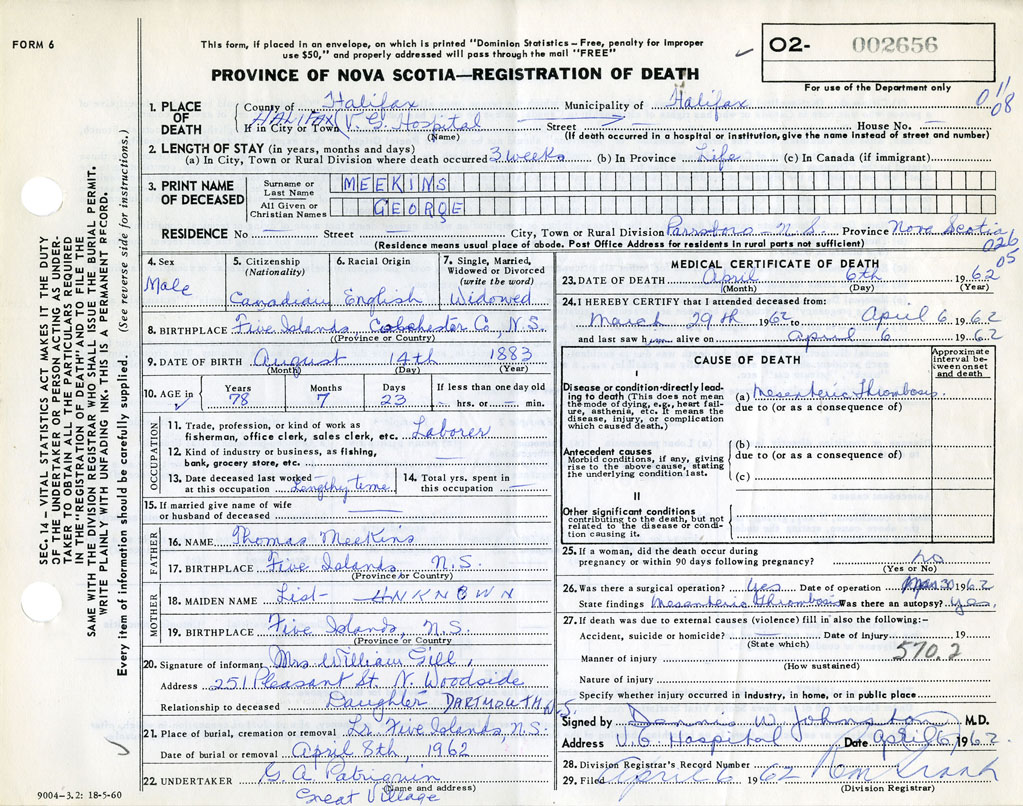 FORM 6
This form, if placed in an envelope, on which is printed "Dominion Statistics – Free, penalty for improper
use $50," and properly addressed will pass through the mail "FREE"
O2- 002656
For use of the Department only
PROVINCE OF NOVA SCOTIA—REGISTRATION OF DEATH
1. PLACE OF DEATH
County of Halifax Municipality of Halifax 011 08
HALIFAX
If in City or Town V. G. Hospital Street House No. —
(Name) (If death occurred in a hospital or institution, give the name instead of street and number)
2. LENGTH OF STAY (in years, months and days)
(a) In City, Town or Rural Division where death occurred 3 weeks (b) In Province Life (c) In Canada (if immigrant)
3. PRINT NAME OF DECEASED
Surname or Last Name MEEKINS
All Given or Christian Names GEORGE
RESIDENCE No — Street — City, Town or Rural Division Parrsboro - N.S. Province Nova Scotia
(Residence means usual place of abode. Post Office Address for residents in rural parts not sufficient)
026 05
4. Sex Male
5. Citizenship (Nationality) Canadian
6. Racial Origin English
7. Single, Married, Widowed or Divorced (write the word) Widowed
8. BIRTHPLACE Five Islands, Colchester Co, N.S.
(Province or Country)
9. DATE OF BIRTH August 14th 1883
(Month) (Day) (Year)
10. AGE in Years 78 Months 7 Days 23 If less than one day old — hrs. or — min.
OCCUPATION
11. Trade, profession, or kind of work as
fisherman, office clerk, sales clerk, etc. Laborer
12. Kind of industry or business, as fishing,
bank, grocery store, etc. —
13. Date deceased last worked
at this occupation Lengthy time
14. Total yrs. spent in
this occupation —
15. If married give name of wife
or husband of deceased —
FATHER
16. NAME Thomas Meekins
17. BIRTHPLACE Five Islands N.S.
(Province or Country)
MOTHER
18. MAIDEN NAME List - UNKNOWN
19. BIRTHPLACE Five Islands, N.S.
(Province or Country)
20. Signature of informant Mrs William Gill,
Address 251 Pleasant St. N. Woodside
Relationship to deceased Daughter DARTMOUTH N.S.
21. Place of burial, cremation or removal Lr. Five Islands, N.S.
Date of burial or removal April 8th, 1962
22. UNDERTAKER G. A. Patriquin
(Name and address)
Great Village
9004-3.2: 18-5-60
MEDICAL CERTIFICATE OF DEATH
23. DATE OF DEATH April 6th 1962
(Month) (Day) (Year)
24. I HEREBY CERTIFY that I attended deceased from:
March 29th 1962 to April 6 1962
and last saw him alive on April 6 1962
CAUSE OF DEATH
Approximate interval between onset and death
I
Disease or condition directly leading to death (This does not mean the mode of dying, e.g., heart failure, asthenia, etc. It means the disease, injury, or complication which caused death.)
(a) Mesenteric Thrombosis
due to (or as a consequence of)
Antecedent causes
Morbid conditions, if any, giving rise to the above cause, stating the underlying condition last.
(b)
due to (or as a consequence of)
(c)
II
Other significant conditions
contributing to the death, but not related to the disease or condition causing it.
25. If a woman, did the death occur during
pregnancy or within 90 days following pregnancy? no
(Yes or No)
26. Was there a surgical operation? yes Date of operation Mar. 30 1962
State findings Mesenteric thrombosis Was there an autopsy? yes.
27. If death was due to external causes (violence) fill in also the following:-
Accident, suicide or homicide? — Date of injury 19
(State which)
570.2
Manner of injury
(How sustained)
Nature of injury
Specify whether injury occurred in industry, in home, or in public place
Signed by Dennis W. Johnston M.D.
Address V. G. Hospital Date April 6, 1962
28. Division Registrar's Record Number
29. Filed April 6 1962
(Division Registrar)
SEC. 14 – VITAL STATISTICS ACT MAKES IT THE DUTY
OF THE UNDERTAKER OR PERSON ACTING AS UNDER-
TAKER TO OBTAIN ALL THE PARTICULARS REQUIRED
IN THE "REGISTRATION OF DEATH" AND TO FILE THE
SAME WITH THE DIVISION REGISTRAR WHO SHALL ISSUE THE BURIAL PERMIT.
WRITE PLAINLY WITH UNFADING INK. THIS IS A PERMANENT RECORD.
Every item of information should be carefully supplied. (See reverse side for instructions.)